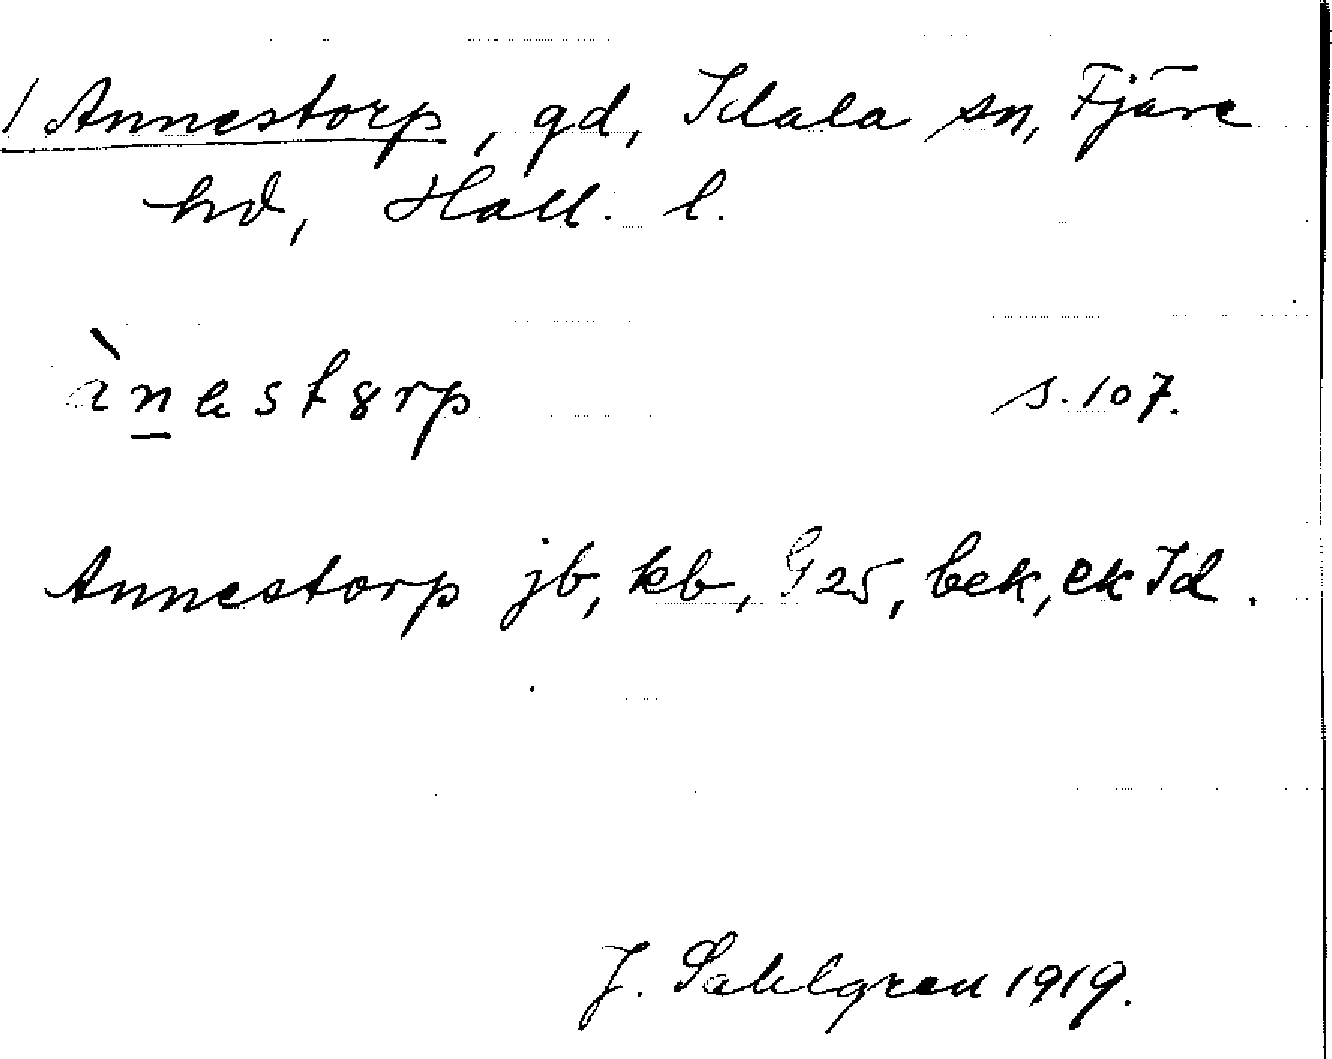 / Annestorp, gd, Idala sn, Fjäre
hd, Hall. l.
ànestɤrp s. 107.
Annestorp jb, kb, G 25, bek, ek Id.
J. Sahlgren 1919.